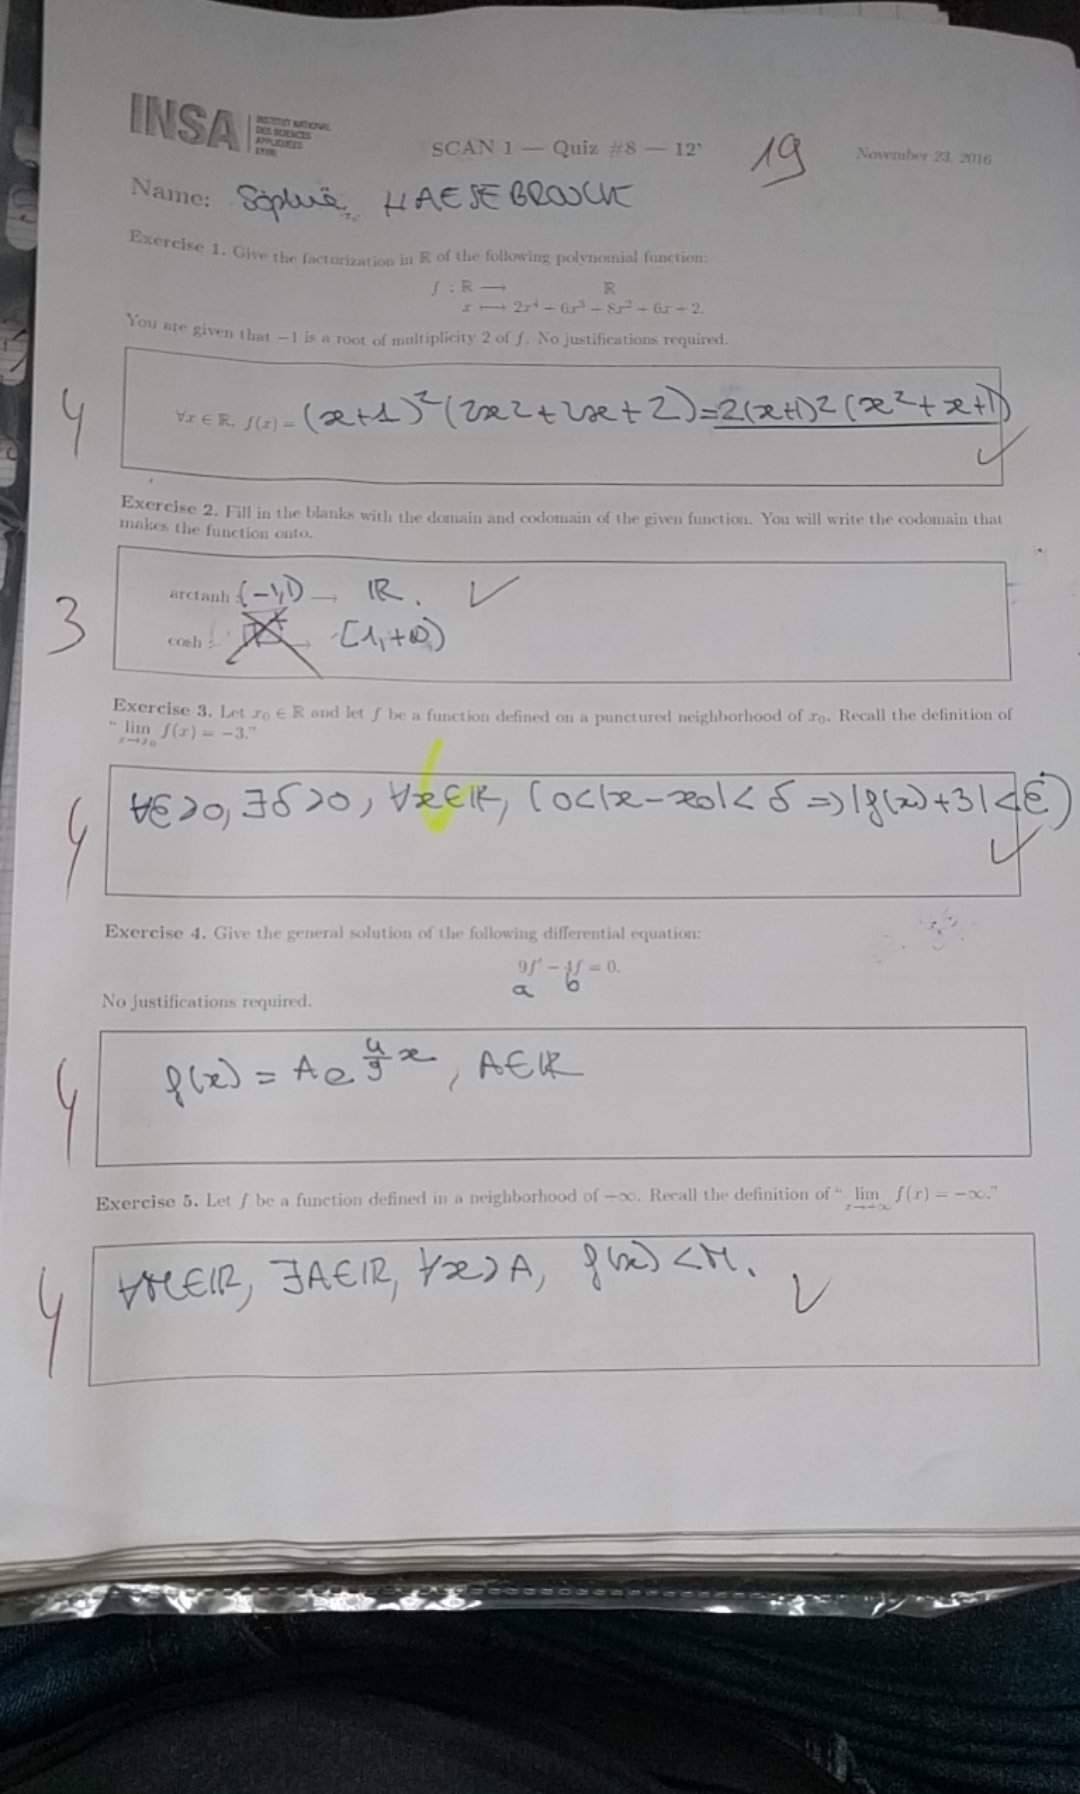 INSA INSTITUT NATIONAL
DES SCIENCES
APPLIQUÉES
LYON
SCAN 1 — Quiz #8 — 12' 19 November 23, 2016
Name: Sophie HAESEBROUCK
Exercise 1. Give the factorization in ℝ of the following polynomial function:
f : ℝ ⟶ ℝ
x ⟼ 2x⁴ + 6x³ + 8x² + 6x + 2.
You are given that −1 is a root of multiplicity 2 of f. No justifications required.
4 ∀x ∈ ℝ, f(x) = (x+1)²(2x2+2x+2)=2(x+1)2(x²+x+1) ✓
Exercise 2. Fill in the blanks with the domain and codomain of the given function. You will write the codomain that
makes the function onto.
arctanh : (-1,1) ⟶ ℝ. ✓
3
cosh : ⟶ [1,+∞)
Exercise 3. Let x₀ ∈ ℝ and let f be a function defined on a punctured neighborhood of x₀. Recall the definition of
“ lim f(x) = −3.”
x→x₀
4 ∀ε>0, ∃δ>0, ∀x∈ℝ, (0<|x-x0|<δ ⇒ |f(x)+3|<ε) ✓
Exercise 4. Give the general solution of the following differential equation:
9f′ − 4f = 0.
a b
No justifications required.
4 f(x) = Ae^(4/9 x), A∈ℝ
Exercise 5. Let f be a function defined in a neighborhood of −∞. Recall the definition of “ lim f(x) = −∞.”
4 ∀M∈ℝ, ∃A∈ℝ, ∀x>A, f(x)<M. ✓